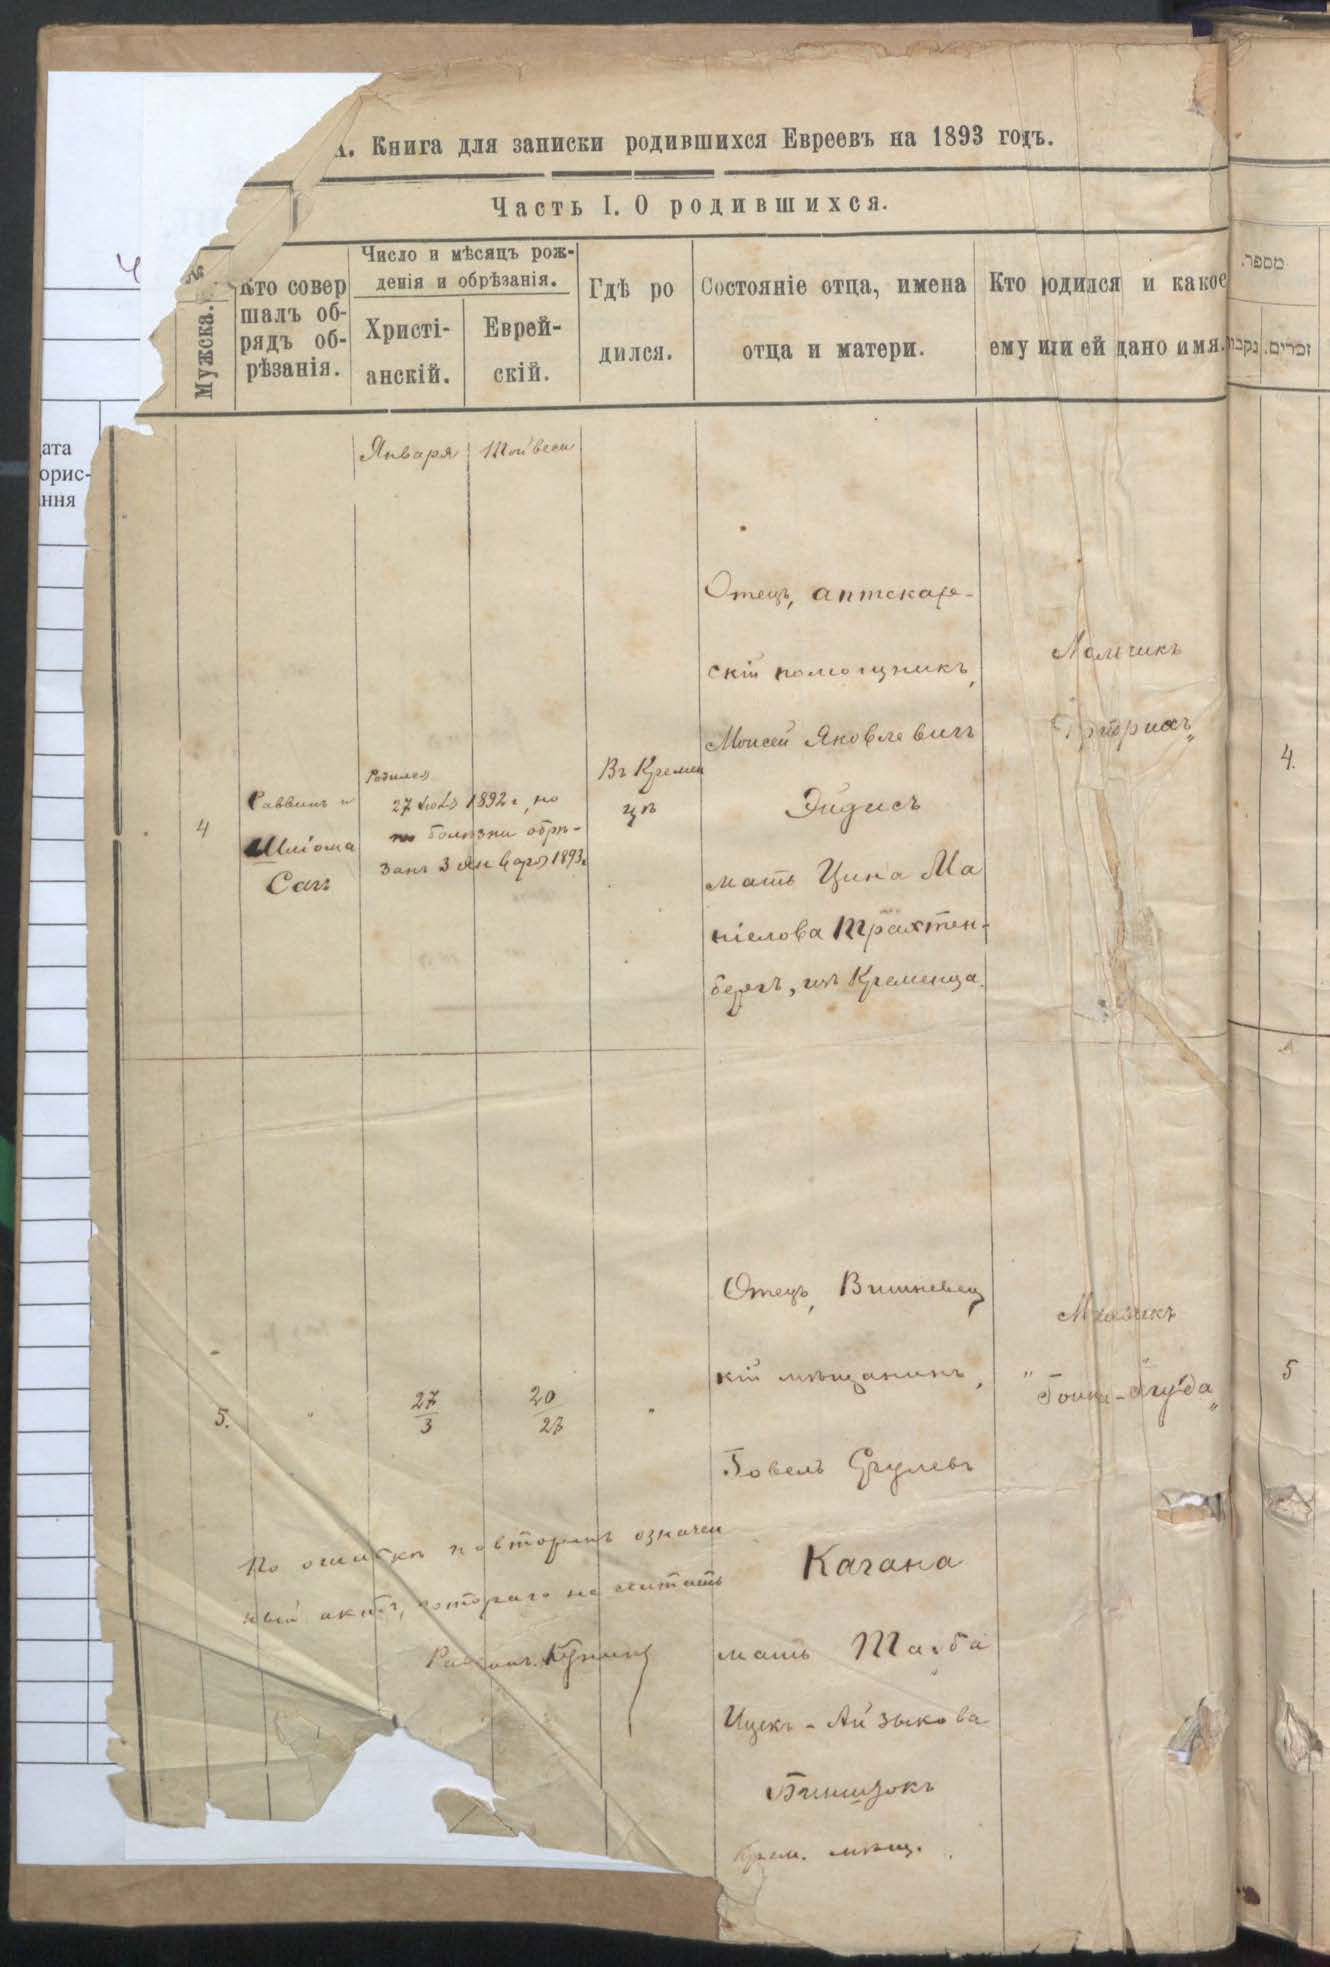 Книга для записки родившихся Евреевъ на 1893 годъ.
Часть I. О родившихся.
Мужска.
Кто совер
шалъ об-
рядъ об-
рѣзанія.
Число и мѣсяцъ рож-
денія и обрѣзанія.
Христі-
анскій.
Еврей-
скій.
Гдѣ ро
дился.
Состояніе отца, имена
отца и матери.
Кто родился и какое
ему или ей дано имя.
מספר.
זכרים.
ата
орис-
ння
Января
4
Раввинъ и
Шліома
Сагъ
Родился
27 1892 г, но
по болѣзни обрѣ-
занъ 3 Января 1893 г
Въ Кремен
цѣ
Отецъ, аптекар-
скій помощникъ,
Моисей Яковлевичъ
Эйдисъ
мать Цина Ма
ніелова Трахтен-
бергъ, изъ Кременца.
Мальчикъ
4.
5.
"
27
3
20
27
"
Отецъ, Вишневец
кій мѣщанинъ,
Говель Срулевъ
Кагана
мать Тауба
Ицекъ-Айзыкова
Бинштокъ
Крем. мѣщ.
Мальчикъ
5
По ошибкѣ повторенъ означен
ный актъ, котораго не считать
Раввинъ Кунинъ